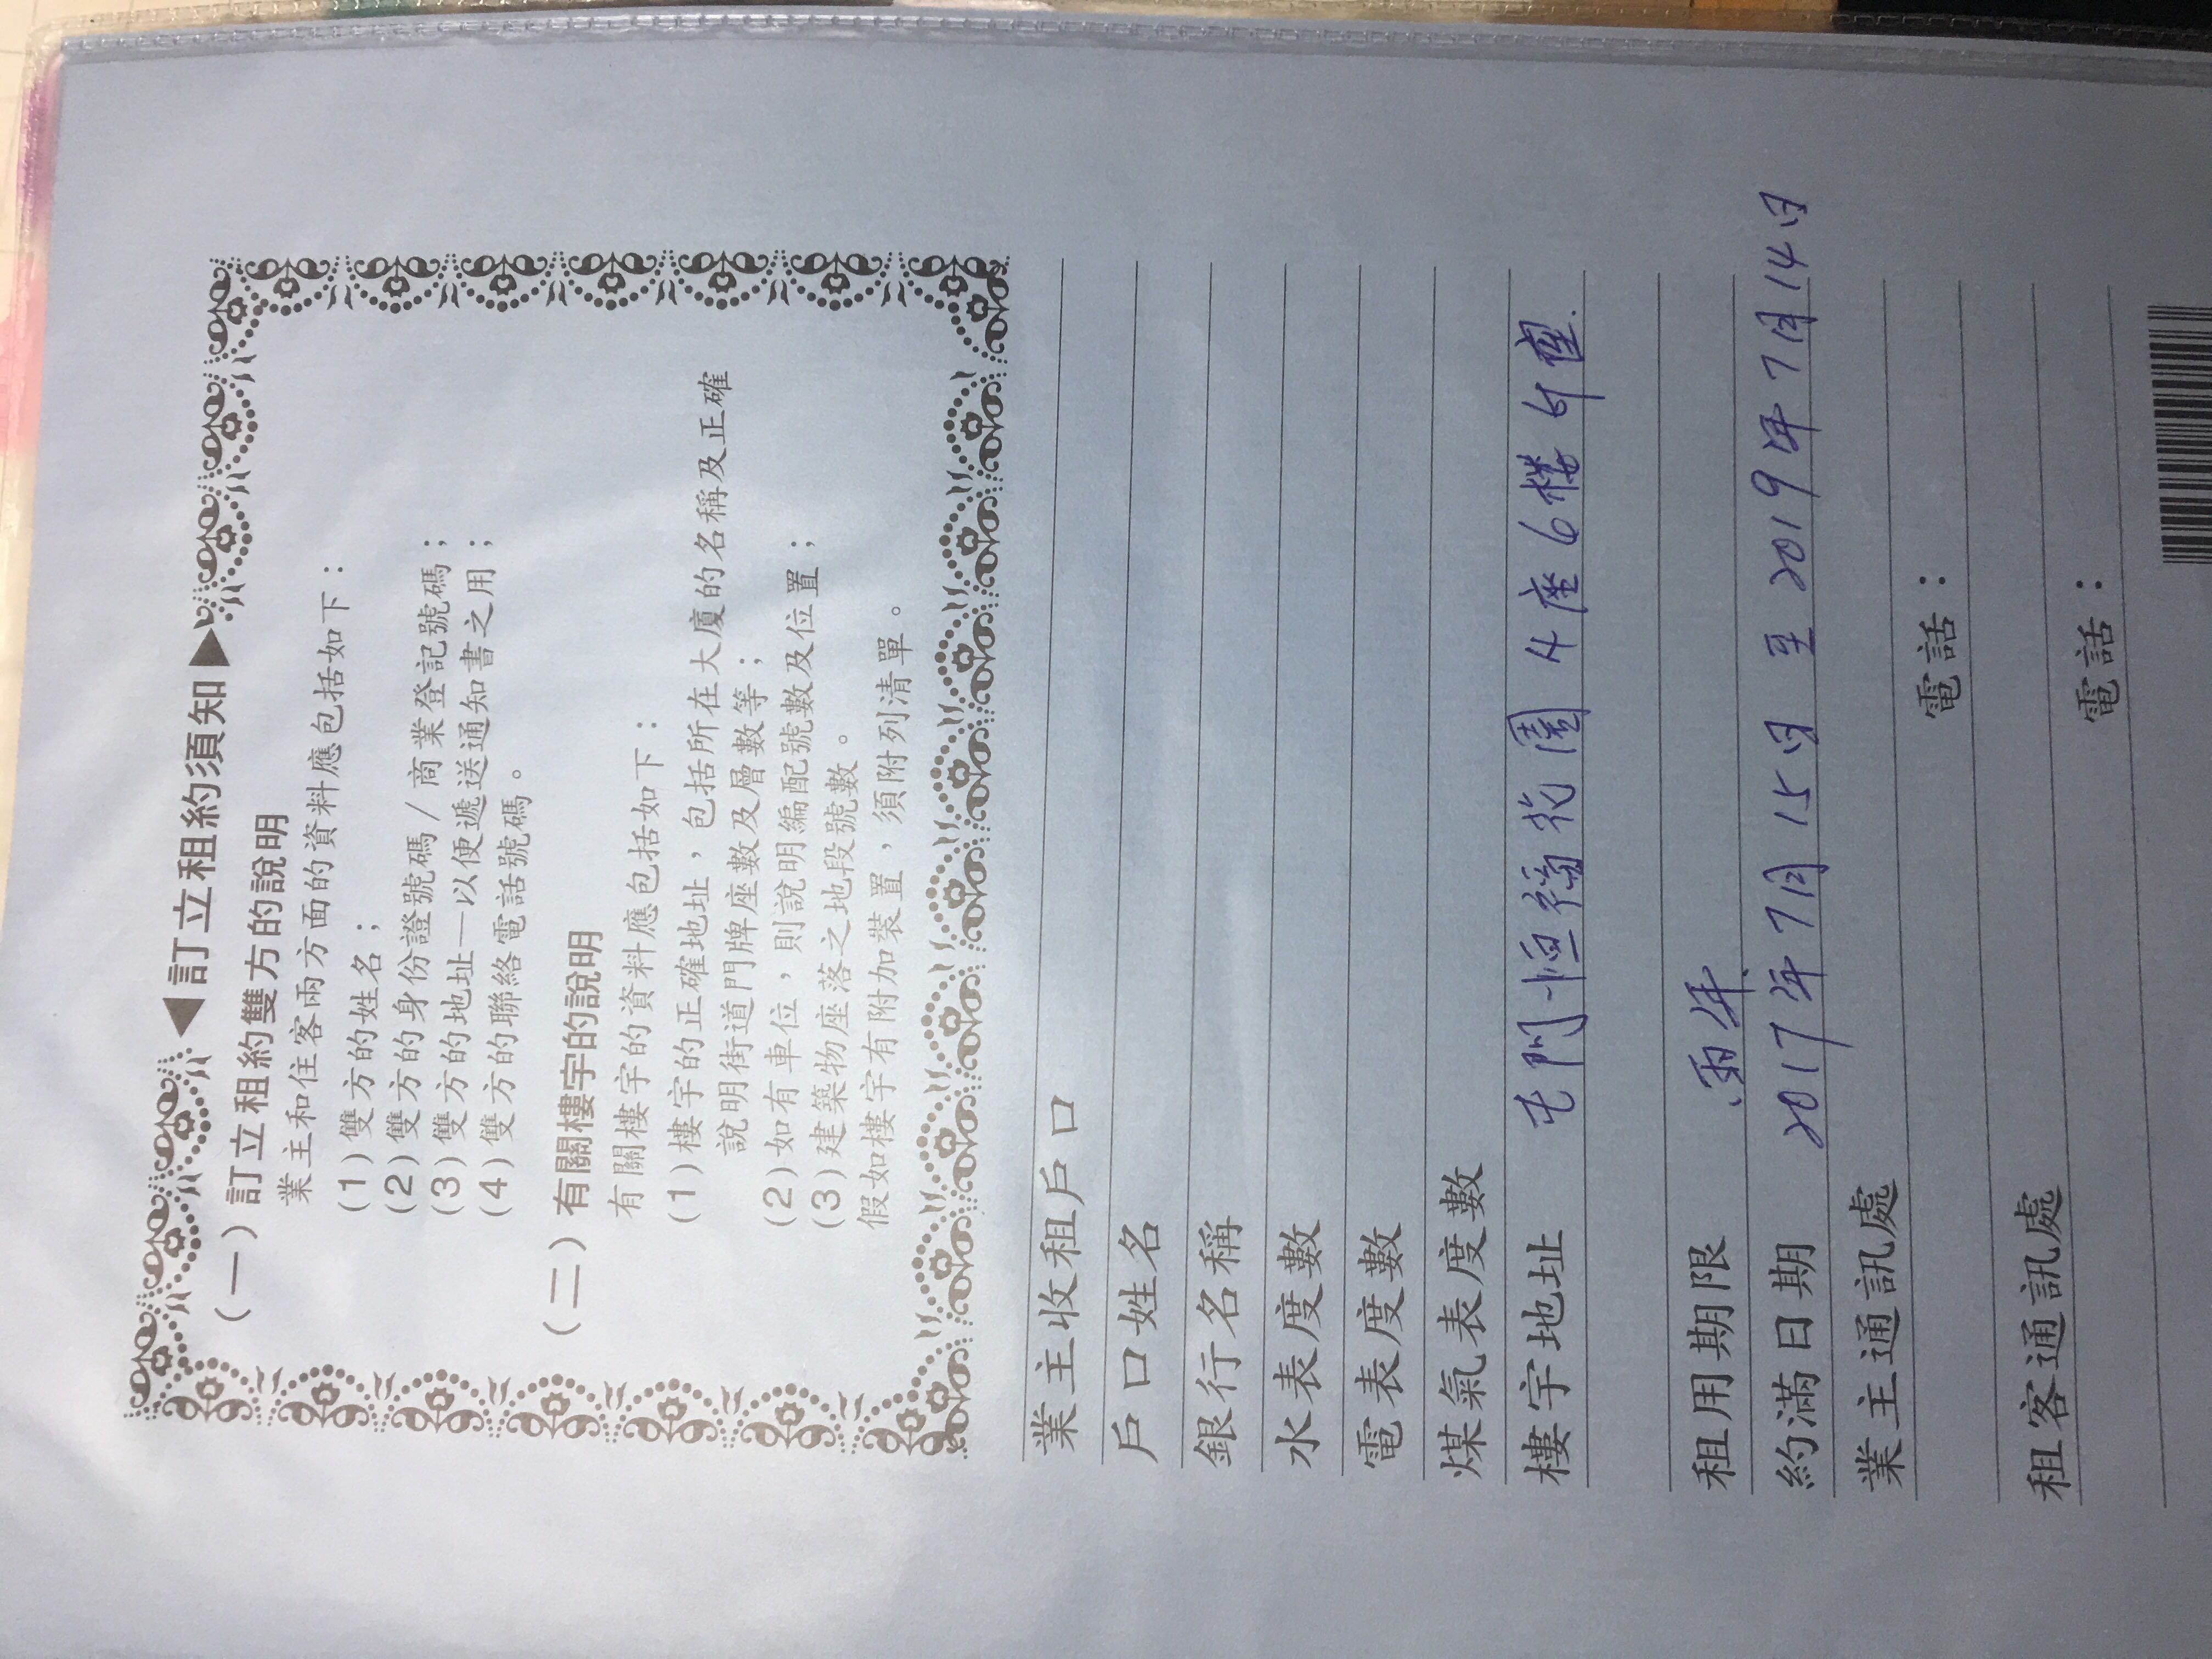 ◀訂立租約須知▶
（一）訂立租約雙方的說明
業主和住客兩方面的資料應包括如下：
(1)雙方的姓名；
(2)雙方的身份證號碼/商業登記號碼；
(3)雙方的地址—以便遞送通知書之用；
(4)雙方的聯絡電話號碼。
（二）有關樓宇的說明
有關樓宇的資料應包括如下：
(1)樓宇的正確地址，包括所在大廈的名稱及正確
說明街道門牌座數及層數等；
(2)如有車位，則說明編配號數及位置；
(3)建築物座落之地段號數。
假如樓宇有附加裝置，須附列清單。
業主收租戶口
戶口姓名
銀行名稱
水表度數
電表度數
煤氣表度數
樓宇地址 屯門恒福花園4座6樓 室
租用期限 兩年
約滿日期 2017年7月15日至2019年7月14日
業主通訊處
電話：
租客通訊處
電話：